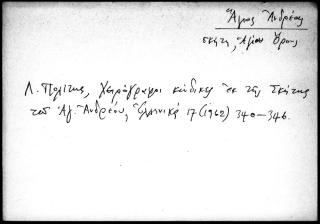 Ἅγιος Ἀνδρέας
σκήτη, Ἁγίου Ὄρους
Λ. Πολίτης, Χειρόγραφοι κώδικες ἐκ τῆς Σκήτης
τοῦ Ἁγ. Ἀνδρέου, Ἑλληνικά 17 (1962) 340–346.